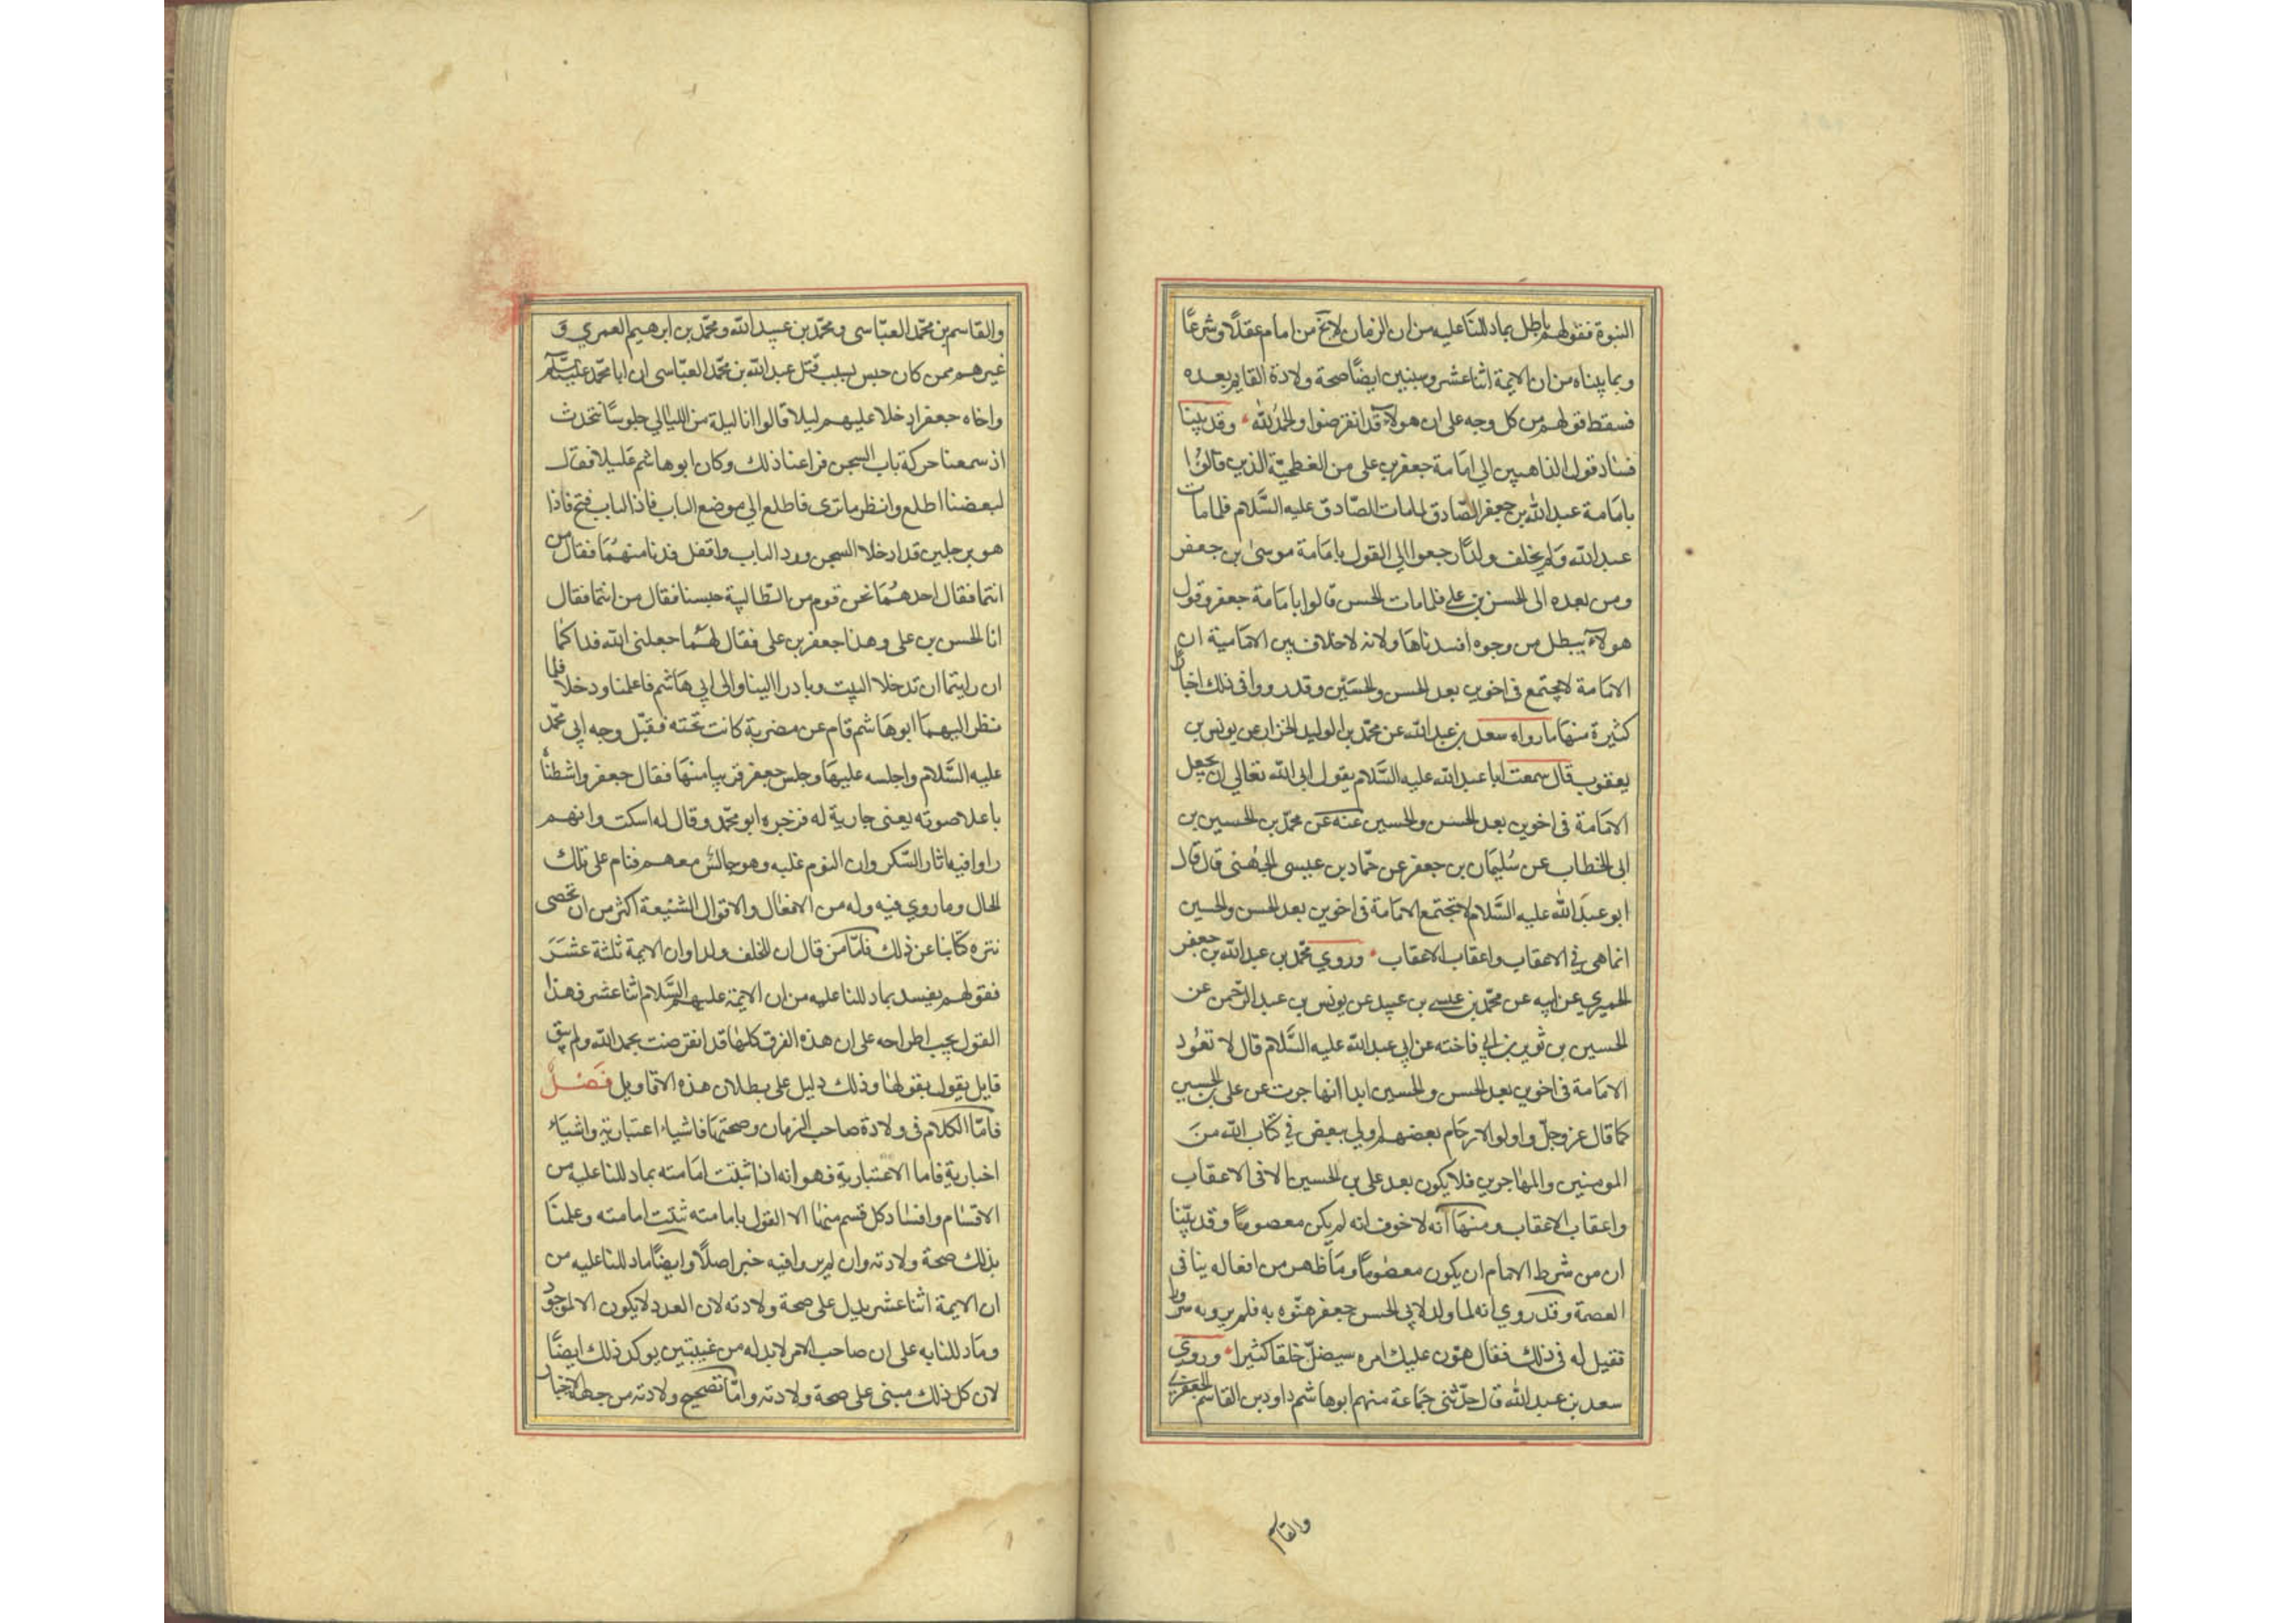 النبوة فقولهم باطل بما دللنا عليه من ان الزمان لا يخ من امام عقلا وشرعًا
وبما بيناه من ان الايمة اثنا عشر وسنبين ايضًا صحة ولادة القايم بعده
فسقط قولهم من كل وجه على ان هولاء قد انقرضوا والحمد لله وقد بينا
فساد قول الذاهبين الي امامة جعفر بن على من الفطحيّة الذين قالوا
بامامة عبد الله بن جعفر الصّادق لما مات الصّادق عليه السَّلام فلما مات
عبد الله ولم يخلف ولدًا رجعوا الي القول بامامة موسىٰ بن جعفر
ومن بعده الى الحسن بن على فلما مات الحسن قالوا بامامة جعفر وقول
هولاء يبطل من وجوه افسدناها ولانه لا خلاف بين الامامية ان
الامامة لا يجتمع فى اخوين بعد الحسن والحسَين وقد رووا فى ذلك اخبارًا
كثيرة منها ما رواه سعد بن عبد الله عن محمّد بن الوليد الخزاز عن يونس بن
يعقوب قال سمعت ابا عبد الله عليه السَّلام يقول ابى الله تعالي ان يجعل
الامامة فى اخوين بعد الحسن والحسين عنه عن محمّد بن الحسين بن
ابى الخطاب عن سُليمان بن جعفر عن حمّاد بن عيسى الجهنى قال قال
ابو عبد الله عليه السَّلام لا تجتمع الامامة فى اخوين بعد الحسن والحسين
انما هى في الاعقاب واعقاب الاعقاب وروي محمّد بن عبد الله بن جعفر
الحميري عن ابيه عن محمّد بن عيسى بن عبيد عن يونس بن عبد الرّحمن عن
الحسين بن ثوير بن ابي فاخته عن ابي عبد الله عليه السَّلام قال لا تعُود
الامامة فى اخوين بعد الحسن والحسين ابدا انها جرت عن على بن الحسين
كما قال عز وجلّ واولوا الارحام بعضهم اولي ببعض في كتاب الله من
المومنين والمهاجرين فلا يكون بعد على بن الحسين الا فى الاعقاب
واعقاب الاعقاب ومنها انه لا خوف انه لم يكن معصومًا وقد بيّنا
ان من شرط الامام ان يكون معصُومًا وما ظهر من افعاله ينافى
العصمة وقد روي انه لما ولد لابي الحسن جعفر هنّوه به فلم يروا به سرورا
فقيل له فى ذلك فقال هوّن عليك امره سيضلّ خلقا كثيرا وروي
سعد بن عبد الله قال حدّثنى جماعة منهم ابو هاشم داود بن القاسم الجعفري
والقاسم
والقاسم بن محمّد العبّاسى ومحمّد بن عبيد الله ومحمّد بن ابرهيم العمري و
غيرهم ممن كان حبس بسبب قتل عبد الله بن محمّد العبّاسى ان ابا محمّد عليه السلام
واخاه جعفرا دخلا عليهم ليلا قالوا كنا ليلة من الليالي جلوسًا نتحدث
اذ سمعنا حركة باب السجن فراعنا ذلك وكان ابو هاشم عليلا فقال
لبعضنا اطلع وانظر ما ترى فاطلع الي موضع الباب فاذا الباب فتح فاذا
هو برجلين قد ادخلا السجن ورد الباب واقفل فدنا منهما فقال من
انتما فقال احدهما نحن قوم من الطّالبية حبسنا فقال من انتما فقال
انا الحسن بن على وهذا جعفر بن على فقال لهما جعلنى الله فداكما
ان رايتما ان تدخلا البيت وبادر الينا والى ابي هاشم فاعلمنا ودخلا فلما
نظر اليهما ابو هاشم قام عن مضربة كانت تحته فقبّل وجه ابي محمّد
عليه السَّلام واجلسه عليها وجلس جعفر قريبا منها فقال جعفر واشطناه
باعلا صوته يعنى جارية له فزجره ابو محمّد وقال له اسكت وانهم
راوا فيه اثار السّكر وان النوم غلبه وهو جالس معهم فنام على تلك
الحال وما روي فيه وله من الافعال والاقوال الشنيعة اكثر من ان تحصى
ننزه كتابنا عن ذلك فامّا من قال ان للخلف ولدا وان الايمة ثلثة عشر
فقولهم يفسد بما دللنا عليه من ان الايمة عليهم السَّلام اثنا عشر فهذا
القول يجب اطراحه على ان هذه الفرق كلها قد انقرضت بحمد الله ولم يبق
قايل يقول بقولها وذلك دليل على بطلان هذه الاقاويل فَصْلٌ
فامّا الكلام فى ولادة صاحب الزمان وصحتها فاشياء اعتبارية واشياء
اخبارية فاما الاعتبارية فهو انه اذا ثبتت امامته بما دللنا عليه من
الاقسام وافساد كل قسم منها الا القول بامامته ثبتت امامته وعلمنا
بذلك صحة ولادته وان لم يروا فيه خبر اصلًا وايضًا ما دللنا عليه من
ان الايمة اثنا عشر يدل على صحة ولادته لان العدد لا يكون الا لموجود
وما دللنا به على ان صاحب الامر لا بد له من غيبتين يوكد ذلك ايضًا
لان كل ذلك مبنى على صحة ولادته وامّا تصحيح ولادته من جهة الاخبار